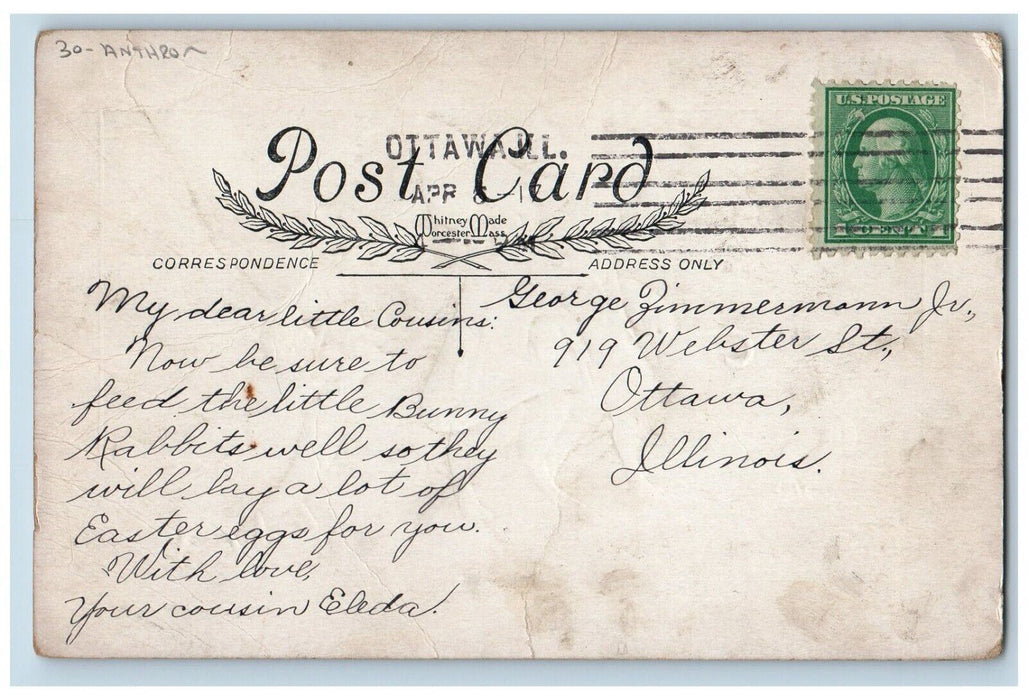 30- ANTHRO
OTTAWA, ILL.
APR
U.S. POSTAGE
1 CENT 1
Post Card
Whitney Made
Worcester Mass
CORRESPONDENCE
ADDRESS ONLY
My dear little Cousins:
Now be sure to
feed the little Bunny
Rabbits well so they
will lay a lot of
Easter eggs for you.
With love,
Your cousin Eleda.
George Zimmermann Jr.,
919 Webster St.,
Ottawa,
Illinois.